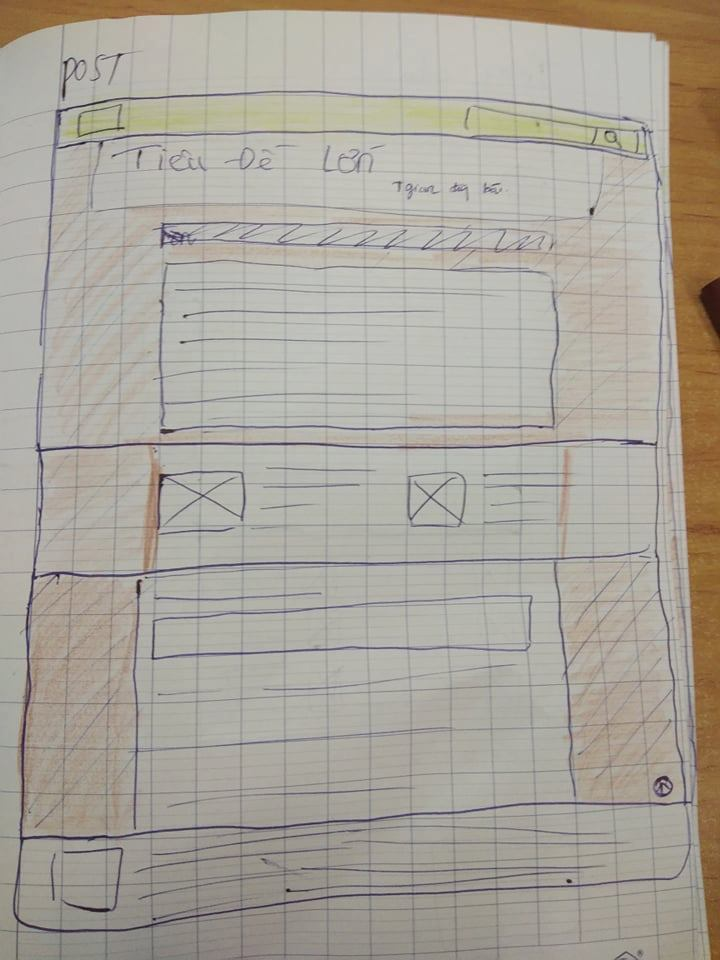 POST
Tiêu Đề Lớn
Tgian đăg bài.